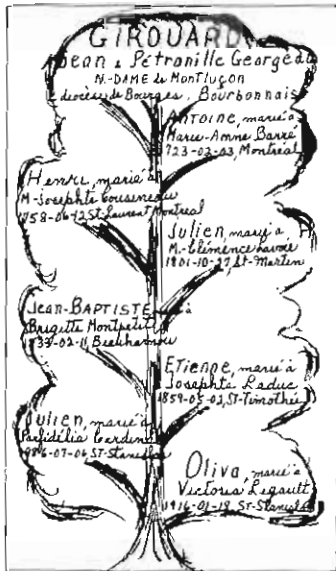 GIROUARD
Jean & Pétronille Georgeau
N.-DAME de MONTLUÇON
diocèse de Bourges, Bourbonnais
ANTOINE, marié à
Marie-Anne Barré
1723-02-03, Montréal
Henri, marié à
M-Josephte Cousineau
1758-06-12 St-Laurent Montreal
Julien, marié à
M-Clémence Lavoie
1801-10-27, St-Martin
Jean-BAPTISTE, à
Brigitte Montpetit
1833-02-11, Beauharnois
ETienne, marié à
Josephte Leduc
1859-05-02, ST-Timothée
Julien, marié à
-07-06 ST-Stanislas
Oliva, marié à
Victoria Legault
1916-01-18, ST-Stanislas